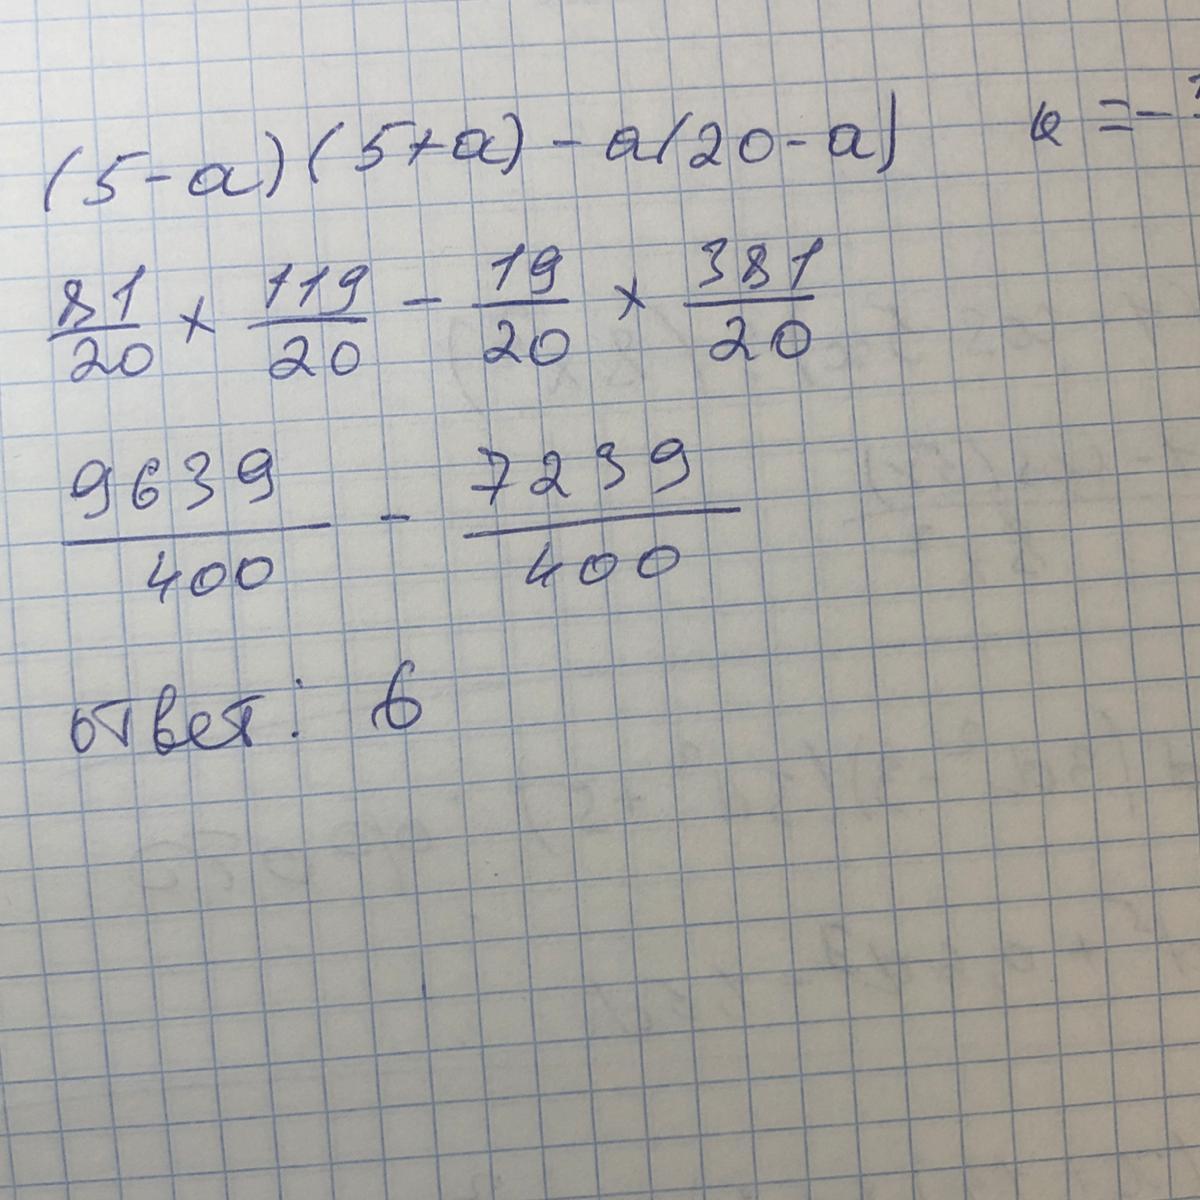 (5-a)(5+a)-a(20-a) a=-
81/20 × 119/20 - 19/20 × 381/20
9639/400 - 7239/400
ответ: 6